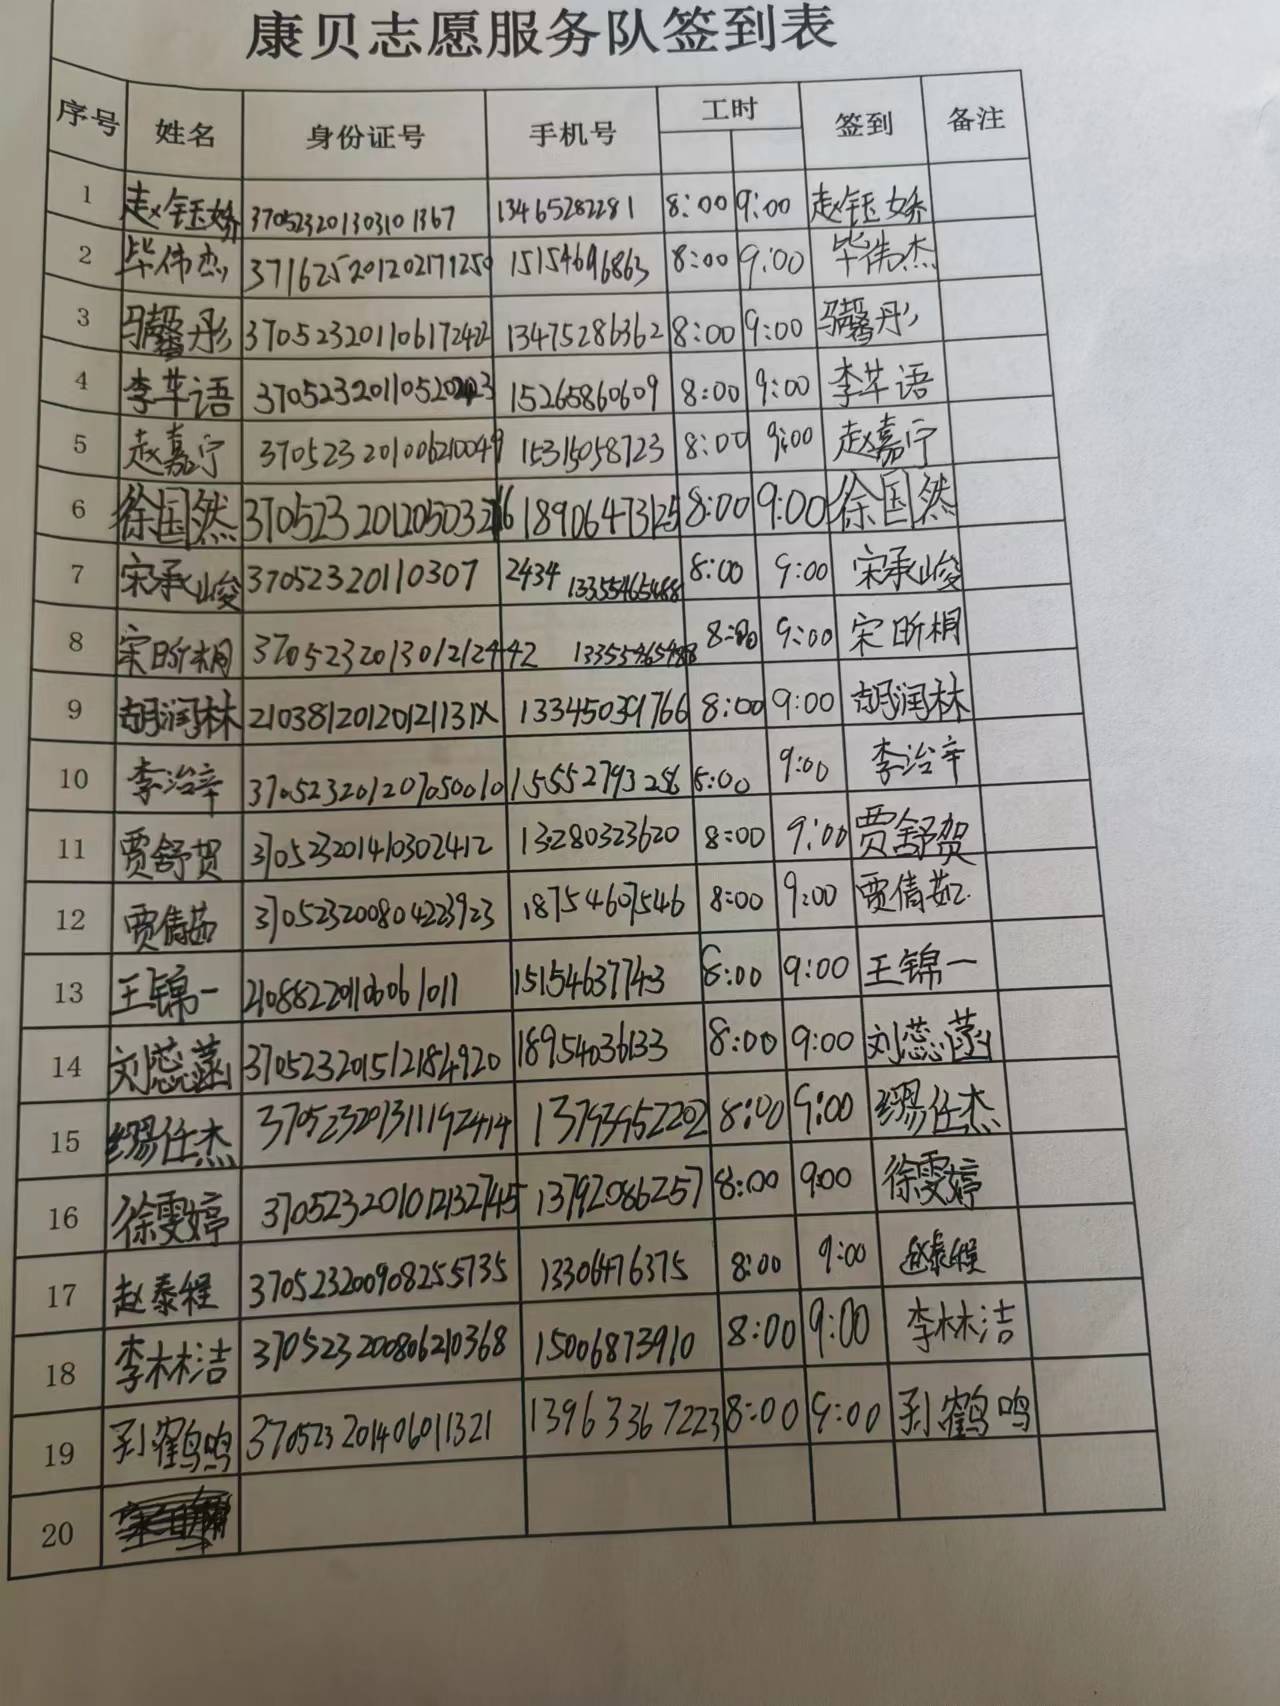 康贝志愿服务队签到表
序号 姓名 身份证号 手机号 工时 签到 备注
1 赵钰娇 370523201303101367 13465282281 8:00 9:00 赵钰娇
2 毕伟杰 371625201202171250 15154696863 8:00 9:00 毕伟杰
3 马馨彤 370523201106172422 13475286362 8:00 9:00 马馨彤
4 李芊语 15265860609 8:00 9:00 李芊语
5 赵嘉宁 370523201006210049 15315058723 8:00 9:00 赵嘉宁
6 徐国然 18906473125 8:00 9:00 徐国然
7 宋承峻 37052320110307 2434 13355465488 8:00 9:00 宋承峻
8 宋昕桐 370523201301212442 8:00 9:00 宋昕桐
9 胡润林 21038120120121131X 133450391766 8:00 9:00 胡润林
10 李治辛 370523201207050010 15552793286 8:00 9:00 李治辛
11 贾舒贺 370523201410302412 13280323620 8:00 9:00 贾舒贺
12 贾倩茹 370523200804223923 18754607546 8:00 9:00 贾倩茹
13 王锦一 210882201106061011 15154637743 8:00 9:00 王锦一
14 刘蕊菡 370523201512184920 18954036133 8:00 9:00 刘蕊菡
15 缪任杰 370523201311192414 13793952202 8:00 9:00 缪任杰
16 徐雯婷 370523201012132745 13792086257 8:00 9:00 徐雯婷
17 赵泰程 370523200908255735 13306476375 8:00 9:00 赵泰程
18 李林洁 370523200806210368 15006873910 8:00 9:00 李林洁
19 孙鹤鸣 370523201406011321 13963367223 8:00 9:00 孙鹤鸣
20